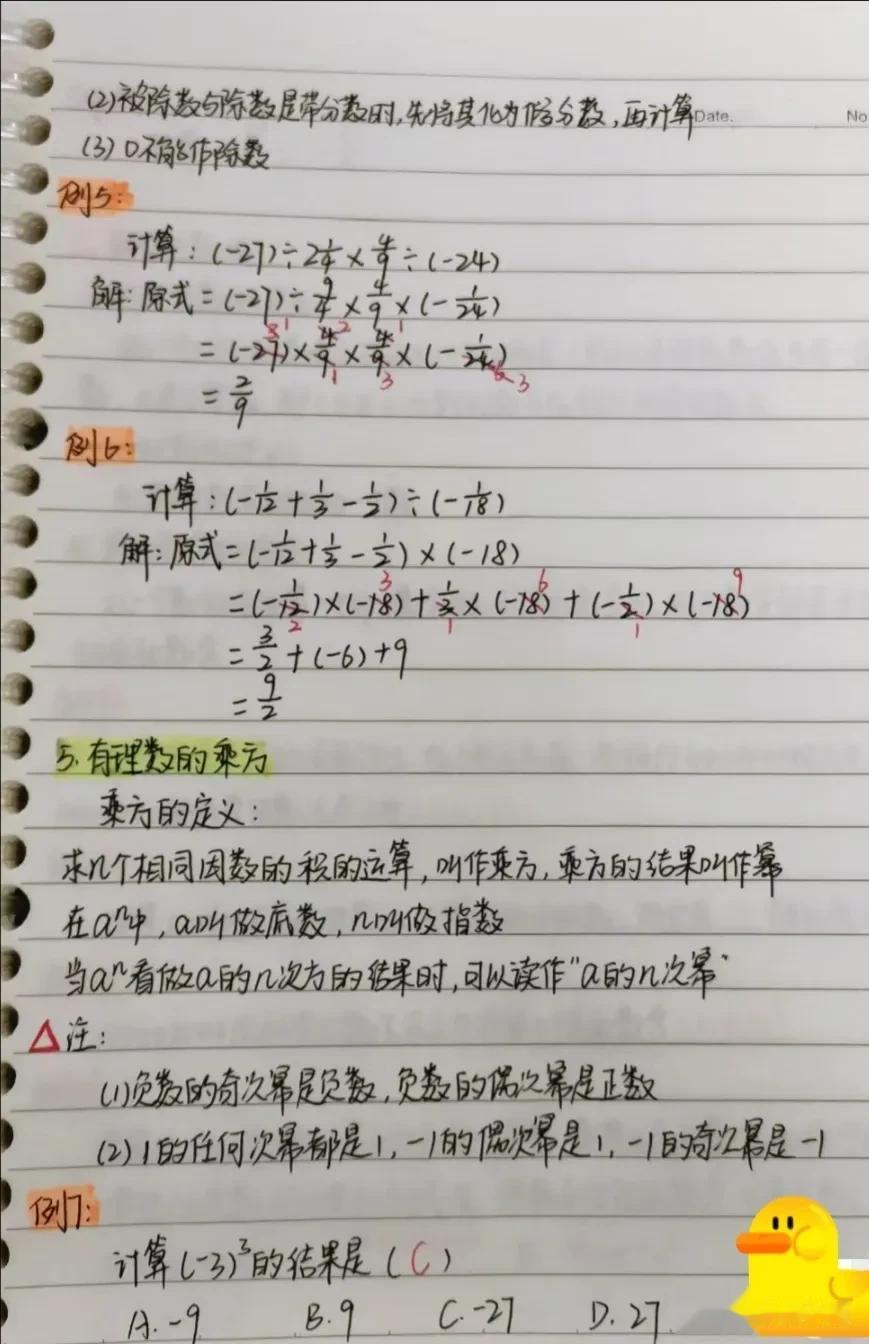 (2)被除数与除数是带分数时,先将其化为假分数,再计算 Date. No
(3) 0不能作除数
例5:
计算: (-27)÷2¼×4/9÷(-24)
解: 原式=(-27)÷9/4×4/9×(-1/24)
=(-27)×4/9×4/9×(-1/24)
=2/9
例6:
计算: (-1/12+1/3-1/2)÷(-1/18)
解: 原式=(-1/12+1/3-1/2)×(-18)
=(-1/12)×(-18)+1/3×(-18)+(-1/2)×(-18)
=3/2+(-6)+9
=9/2
5.有理数的乘方
乘方的定义:
求n个相同因数的积的运算,叫作乘方,乘方的结果叫作幂
在aⁿ中,a叫做底数,n叫做指数
当aⁿ看做a的n次方的结果时,可以读作"a的n次幂"
△注:
(1)负数的奇次幂是负数,负数的偶次幂是正数
(2)1的任何次幂都是1,-1的偶次幂是1,-1的奇次幂是-1
例7:
计算(-3)³的结果是(C)
A.-9 B.9 C.-27 D.27